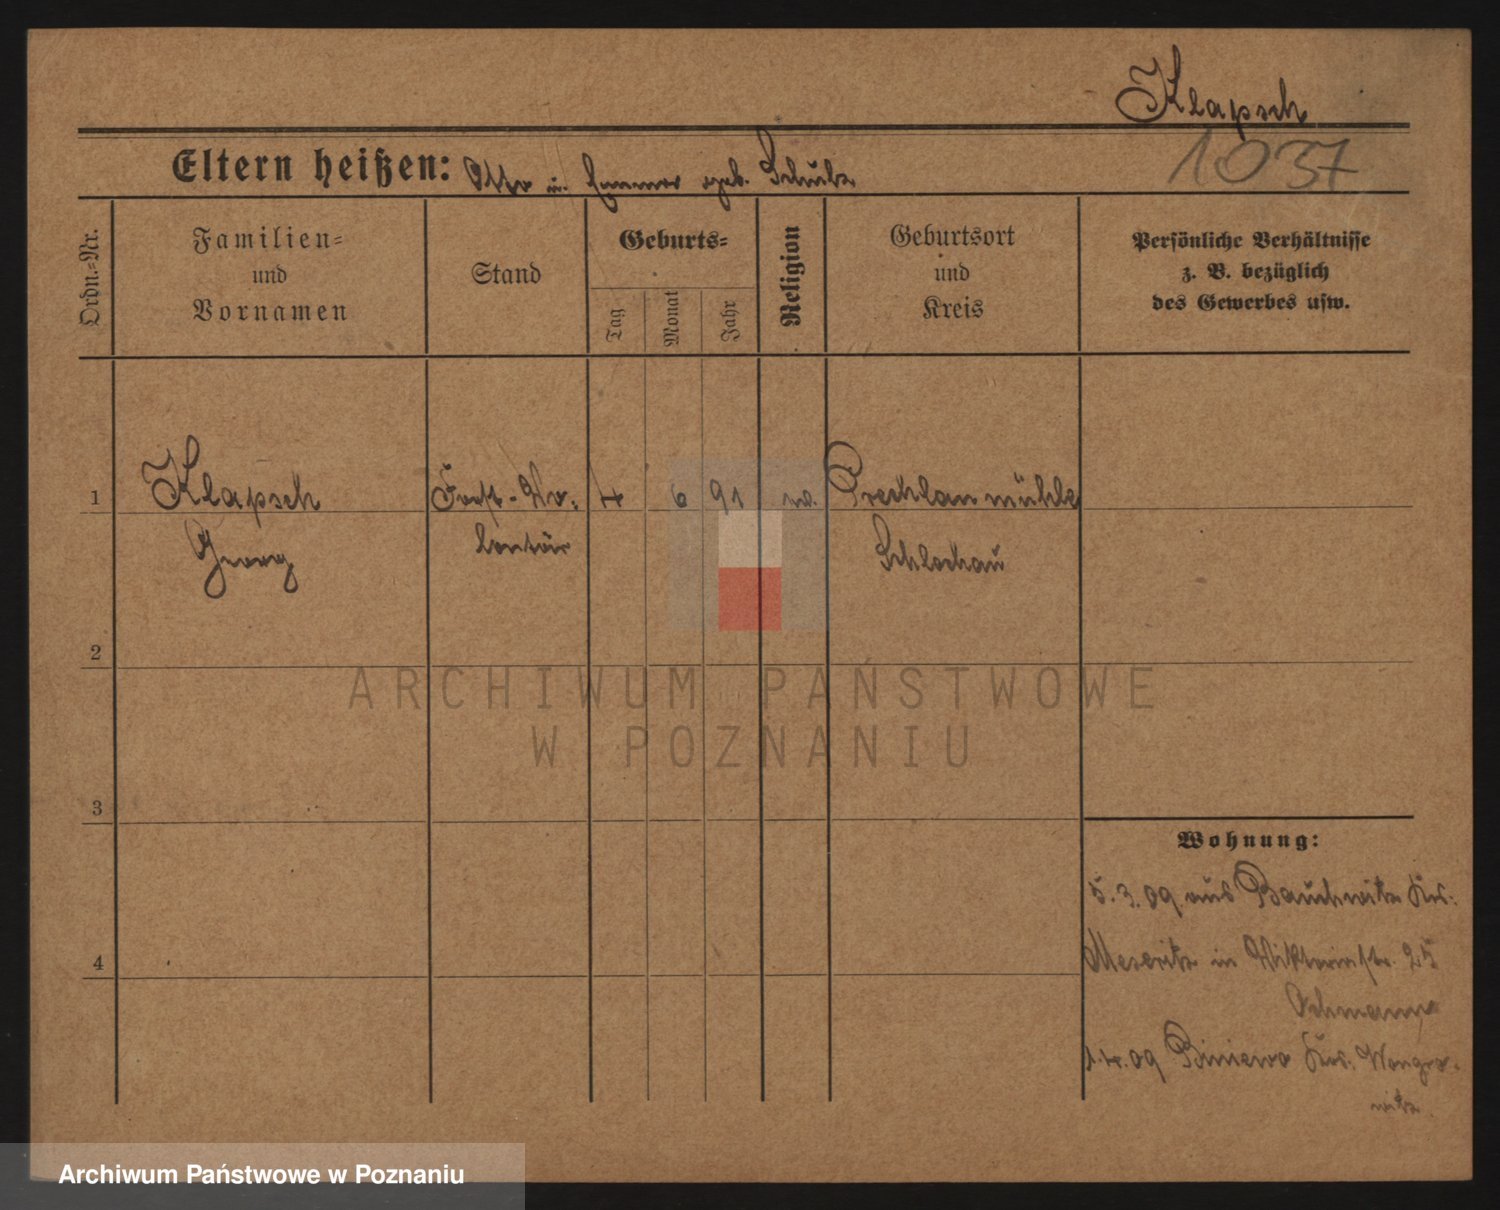 Klapsch
1037
Eltern heißen: Otto u. Emma geb. Schulz
Ordn.=Nr.
Familien=
und
Vornamen
Stand
Geburts=
Tag
Monat
Jahr
Religion
Geburtsort
und
Kreis
Persönliche Verhältnisse
z. B. bezüglich
des Gewerbes usw.
1 Klapsch Forst-Vo- 4 6 91 Prechlaumühle
Georg lontär Schlochau
2
3
4
Wohnung:
5.3.09 aus Bauchwitz Krs.
Meseritz in Viktoriastr. 25
1.4.09 Biniewo Krs. Wongro-
witz.
ARCHIWUM PAŃSTWOWE
W POZNANIU
Archiwum Państwowe w Poznaniu